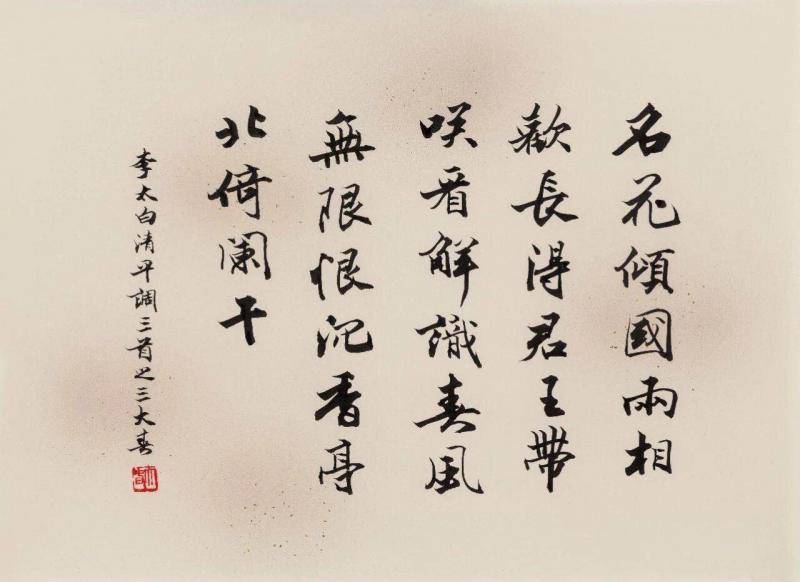 名花傾國兩相
歡長得君王帶
咲看解識春風
無限恨沉香亭
北倚闌干
李太白清平調三首之三大春